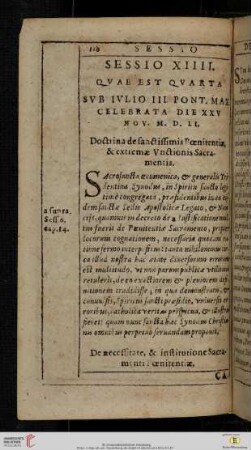 118 SESSIO
SESSIO XIIII.
QVAE EST QVARTA
SVB IVLIO III. PONT. MAX.
CELEBRATA DIE XXV
NOV. M. D. LI.
Doctrina de sanctissimis Pœnitentiæ,
& extremæ Vnctionis Sacra-
mentis.
SAcrosancta œcumenica, & generalis Tri-
dentina Synodus, in Spiritu sancto legi-
time congregata, præsidentibus in ea
dem sanctæ Sedis Apostolicæ Legato, & Nun
cijs. quamuis in decreto de a iustificatione mul-
tus fuerit de Pœnitentiæ Sacramento, propter
locorum cognationem, necessaria quadam ra
tione sermo
est multitudo, vt non parum publicæ vtilita
de exactiorem & pleniorem
nitionem tradidisse, in qua demonstratis, &
conuulsis, Spiritus sancti præsidio, vniuersis er
roribus, catholica veritas perspicua, & illustris
fieret: quam nunc sancta hæc Synodus Christia
nis omnibus perpetuò seruandam proponit.
a supra,
Sess. 6.
cap. 14.
De necessitate, & institutione Sacra-
menti Pœnitentiæ.
CA